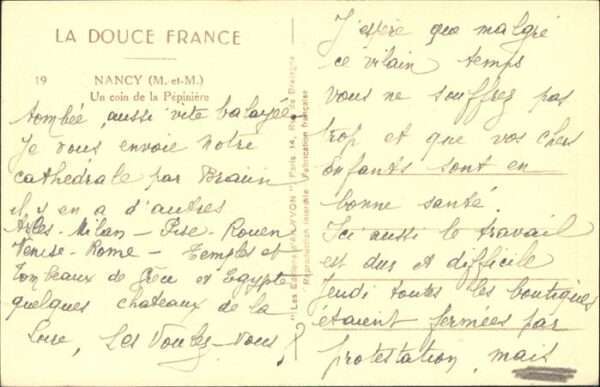 LA DOUCE FRANCE
19 NANCY (M.-et-M.)
Un coin de la Pépinière
tombée, aussi vite balayée.
Je vous envoie notre
cathédrale par Braün
il y en a d'autres
Arles - Milan - Pise - Rouen
Venise - Rome - Temples et
Tombeaux de Grèce et Egypte
quelques chateaux de la
Loire, Les Voulez-Vous ?
"Les Editions d'Art YVON" Paris, 14, Rue de Bretagne
Reproduction interdite Fabrication française
J'espère que malgré
ce vilain temps
vous ne souffrez pas
trop et que vos chers
enfants sont en
bonne santé
Ici aussi le travail
est dur et difficile
Jeudi toutes les boutiques
etaient fermées par
protestation, mais